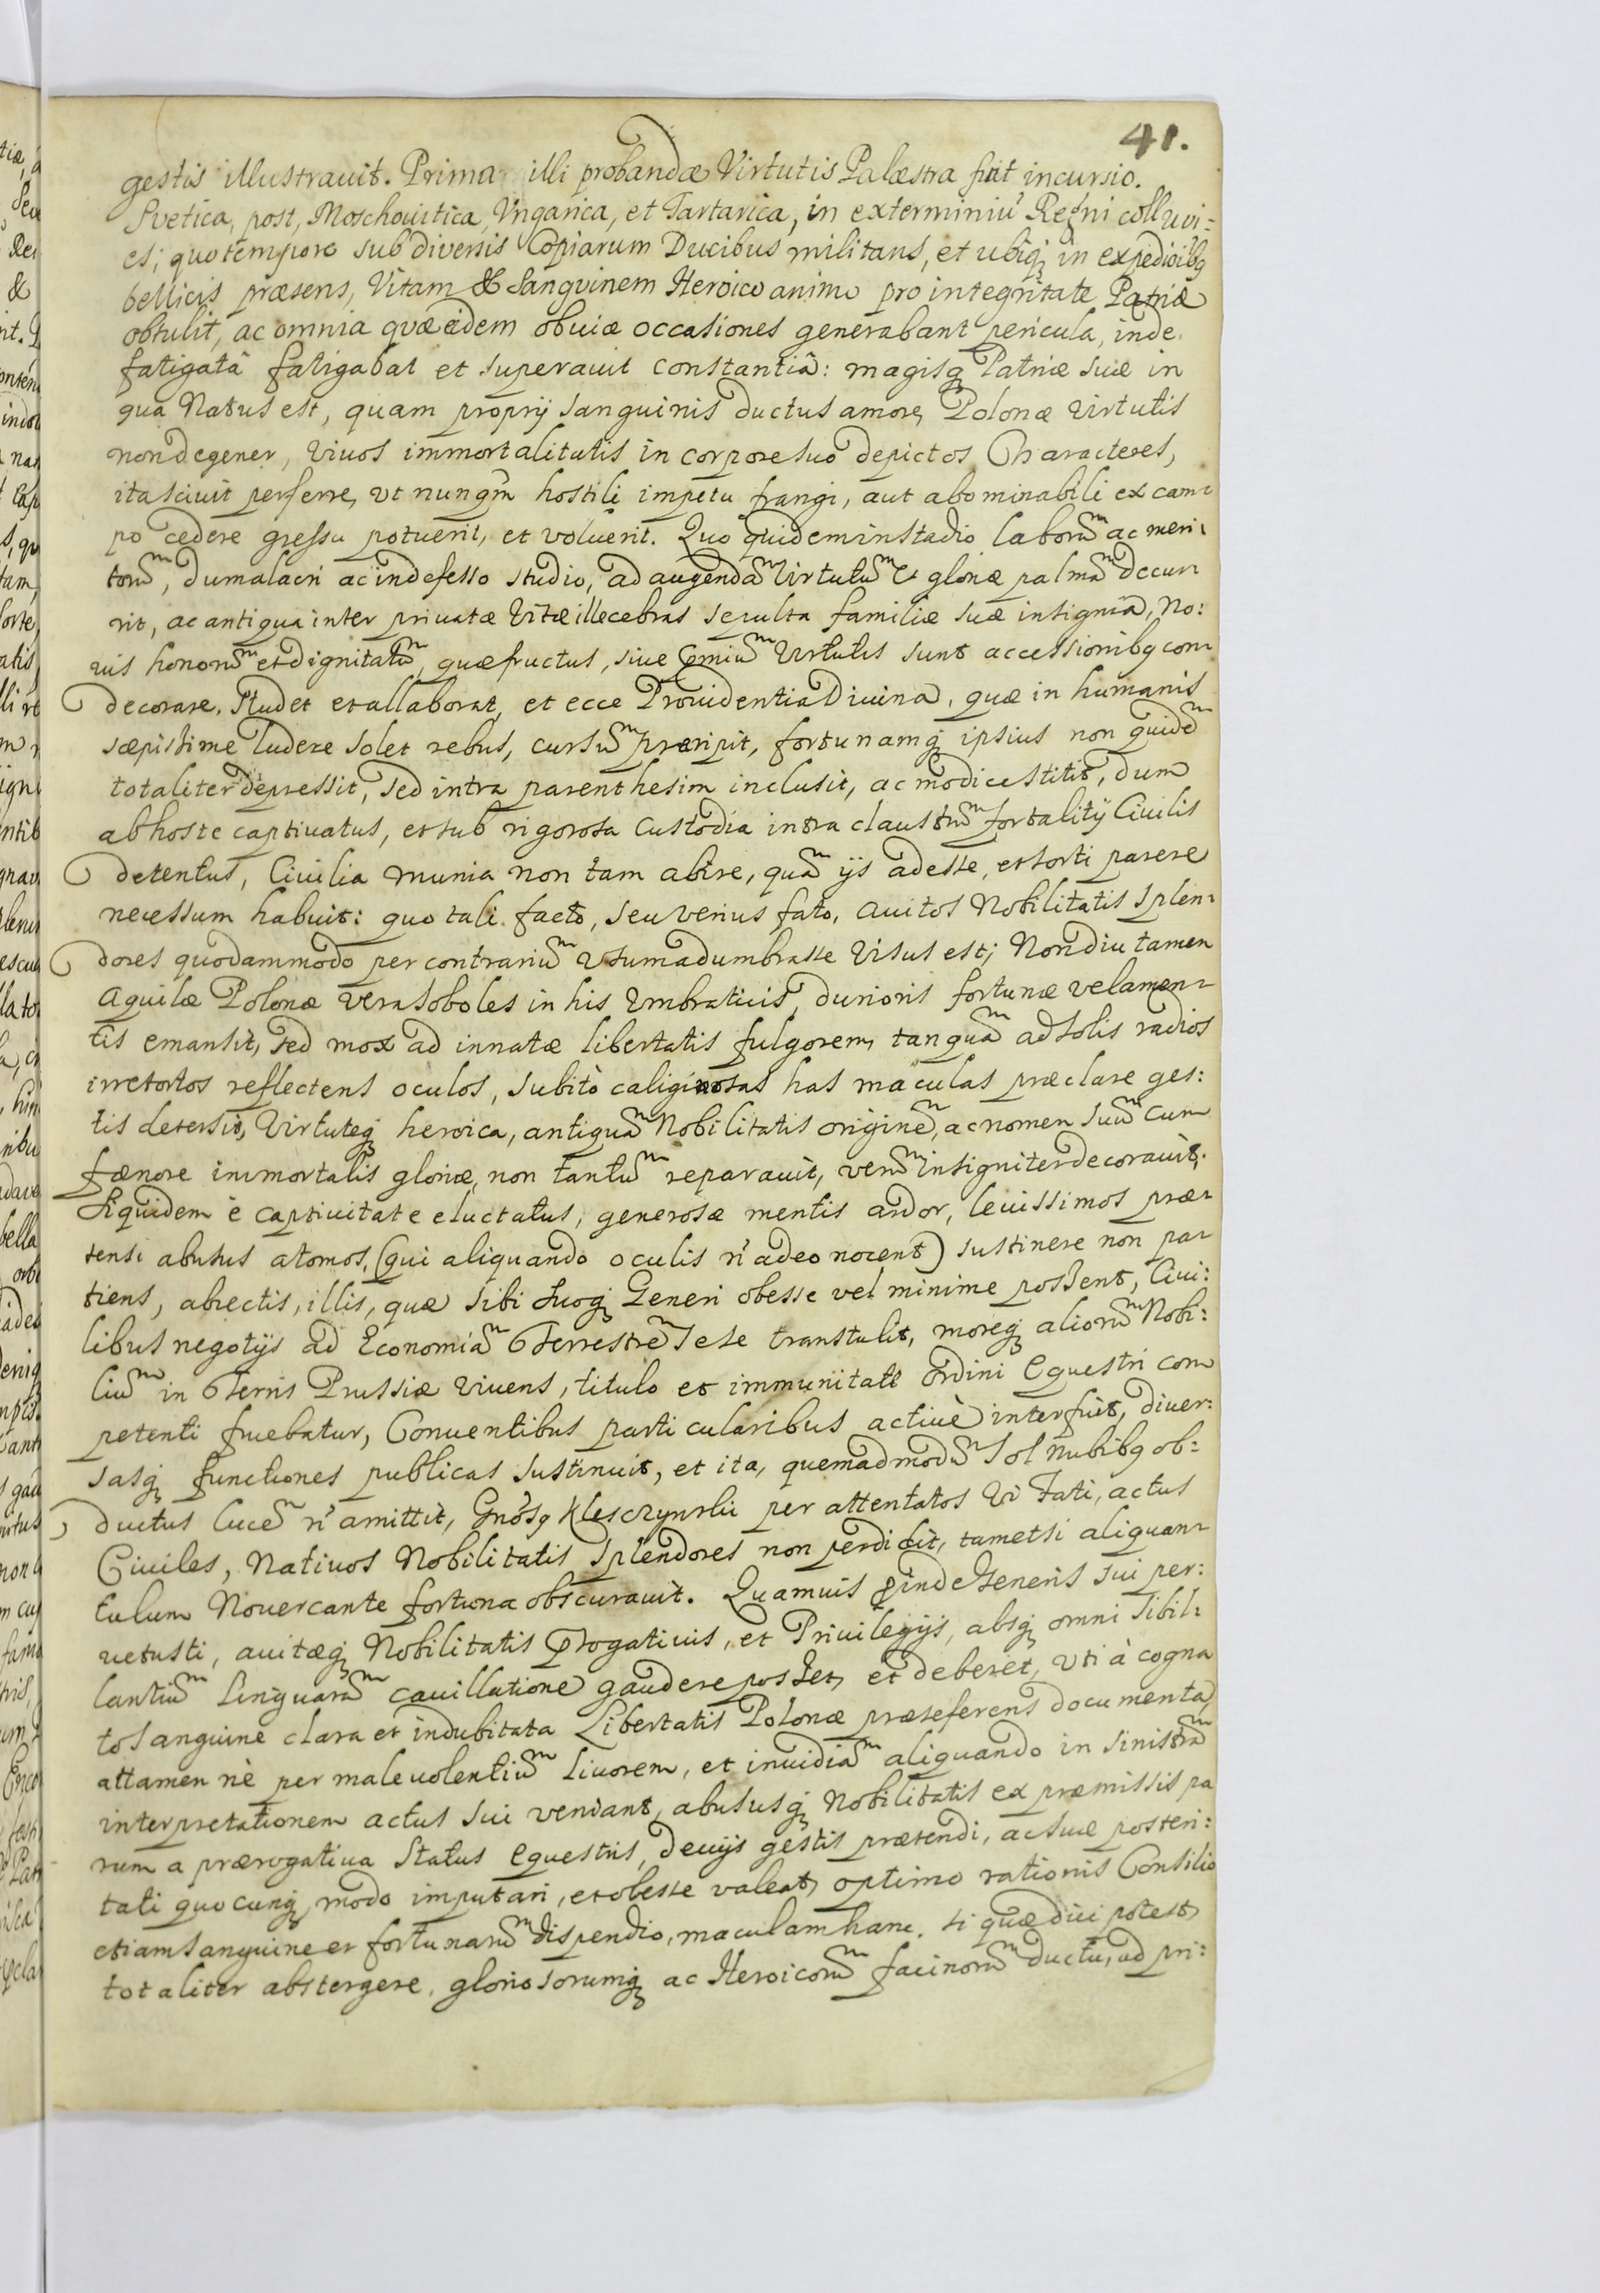 41.
gestis illustrauit. Prima illi probandæ Virtutis Palæstra fuit incursio.
Svetica, post, Moschouitica, Vngarica, et Tartarica, in exterminiũ Regni colluvi:
es; quo tempore sub diversis Copiarum Ducibus militans, et ubiq; in expedicibq
bellicis præsens, Vitam & Sangvinem Heroico animo pro integritate Patriæ
obtulit, ac omnia quæ eidem obviæ occasiones generabant pericula, inde
fatigatâ fatigabat et superavit constantiâ: magisq; Patriæ suæ in
qua Natus est, quam proprij sanguinis ductus amore, Polonæ Virtutis
non degener, Vivos immortalitatis in corpore suo depictos Characteres,
ita sciuit perferre, vt nunqm̃ hostili impetu frangi, aut abominabili ex cam-
po cedere gressu potuerit, et voluerit. Quo quidem in stadio laborũm ac meri-
torũm, dum alacri ac indefesso studio, ad augendãm Virtutũm et gloriæ palmãm decur-
rit, ac antiqua inter privatæ Vitæ illecebras sepulta familiæ suæ insignia, No:
uis honorũm et dignitatũm, quæ fructus, siue pmiũm Virtutis sunt accessionibq con-
decorare. Studet et allaborat, et ecce Providentia Divina, quæ in humanis
sæpissime ludere solet rebus, cursũm præripit, fortunamq; ipsius non quidẽm
totaliter depressit, sed intra parenthesim inclusit, ac modice stitit, dum
ab hoste captivatus, et sub rigorosa custodia intra claustrũm fortalitij Civilis
detentus, Civilia munia non tam abire, quãm ijs adesse, et sorti parere
necessum habuit: quo tali facto, seu verius fato, avitos Nobilitatis splen-
dores quodammodo per contrariũm Vsum adumbrasse visus est; Non diu tamen
Aquilæ Polonæ vera soboles in his Vmbraticis, durioris fortunæ velamen-
tis emansit, sed mox ad innatæ libertatis fulgorem, tanquãm ad solis radios
irretortos reflectens oculos, subitò caliginosas has maculas præclare ges:
tis detersit, Virtuteq; heroica, antiquãm Nobilitatis originẽm, ac nomen suũm cum
fænore immortalis gloriæ, non tantũm reparavit, verũm insigniter decoravit,
Siquidem è captivitate eluctatus, generosæ mentis ardor, levissimos præ-
tensi abusus atomos, (qui aliquando oculis ñ adeo nocent) sustinere non pa-
tiens, abiectis, illis, quæ sibi suoq; Generi obesse vel minime possent, Civi:
libus negotijs ad Economiãm Terrestrẽm sese transtulit, moreq; aliorũm Nobi:
liũm in Terris Prussiæ vivens, titulo et immunitate Ordini Equestri com
petenti fruebatur, Conventibus particularibus activè interfuit, diver:
sasq; functiones publicas sustinuit, et ita, quemadmodũm Sol nubibq ob:
ductus lucẽm ñ amittit, Gnosq Kleszczynskii per attentatos Vi Fati, actus
Civiles, Nativos Nobilitatis splendores non perdidit, tametsi aliquan-
tulum Novercante fortuna obscuravit. Quamvis pinde Generis sui per:
vetusti, avitæq; Nobilitatis Progativis, et Privilegijs, absq; omni sibil:
lantiũm Linguarũm cavillatione gaudere posset, et deberet, vti à cogna
to sanguine clara et indubitata Libertatis Polonæ præseferens documenta,
attamen nè per malevolentiũm livorem, et invidiãm aliquando in sinistrãm
interpretationem actus sui veniant, abususq; Nobilitatis ex præmissis pa
rum a prærogativa Status Equestris, devijs gestis prætendi, ac suæ posteri:
tati quocunq; modo imputari, et obesse valeat, optimo rationis Consilio
etiam sanguine et fortunarũm dispendio, maculam hanc, si quæ dici potest,
totaliter abstergere, gloriosorumq; ac Heroicorũm facinorũm ductu, ad pri: